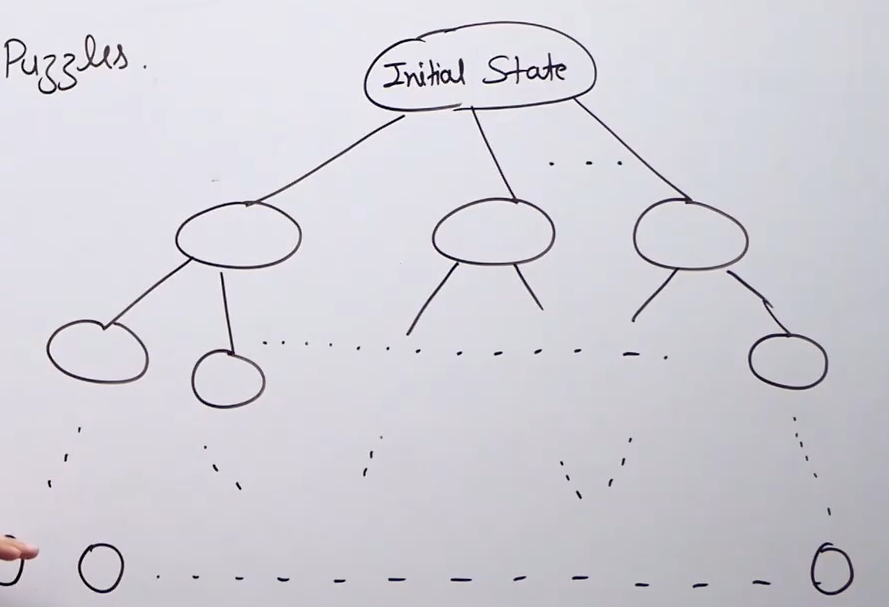 Puzzles.
Initial State